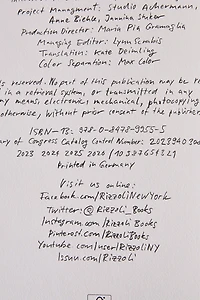 Project Managment: Studio Achermann,
Anne Biehle, Jannika Stuker
Production Director: Maria Pia Gramaglia
Managing Editor: Lynn Scrabis
Translation: Kate Deimling
Color Separation: Max Color
reserved. No part of this publication may be re
d in a retrieval system, or transmitted in any
ny means, electronic, mechanical, photocopying
otherwise, without prior consent of the publisher
ISBN-13: 978-0-8478-9955-5
ary of Congress Catalog Control Number:
2023 2024 2025 2026 / 10 9 8 7 6 5 4 3 2 1
Printed in Germany
Visit us online:
Facebook.com/RizzoliNewYork
Twitter: @Rizzoli_Books
Instagram.com/RizzoliBooks
Pinterest.com/RizzoliBooks
Youtube.com/user/RizzoliNY
Issuu.com/Rizzoli